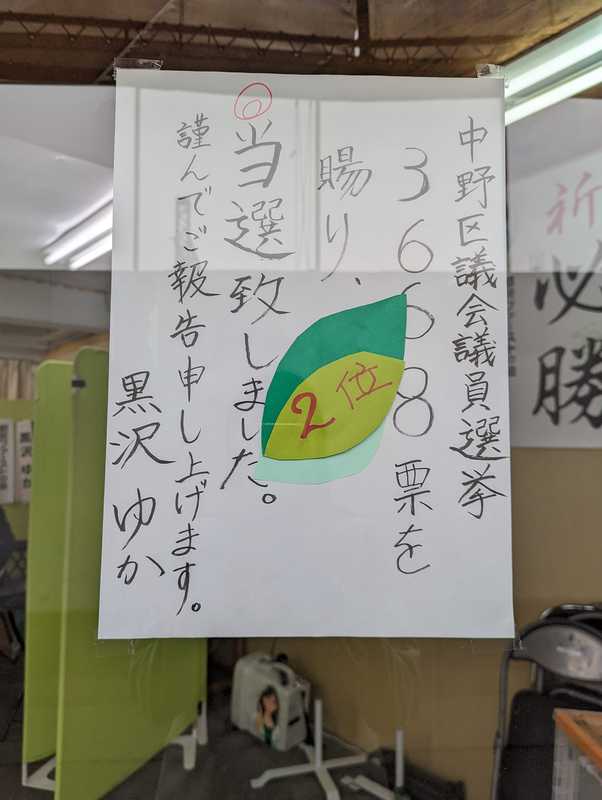 中野区議会議員選挙
3668票を
賜り、
当選致しました。
謹んでご報告申し上げます。
黒沢ゆか
2位
祈
必勝
黒沢ゆか